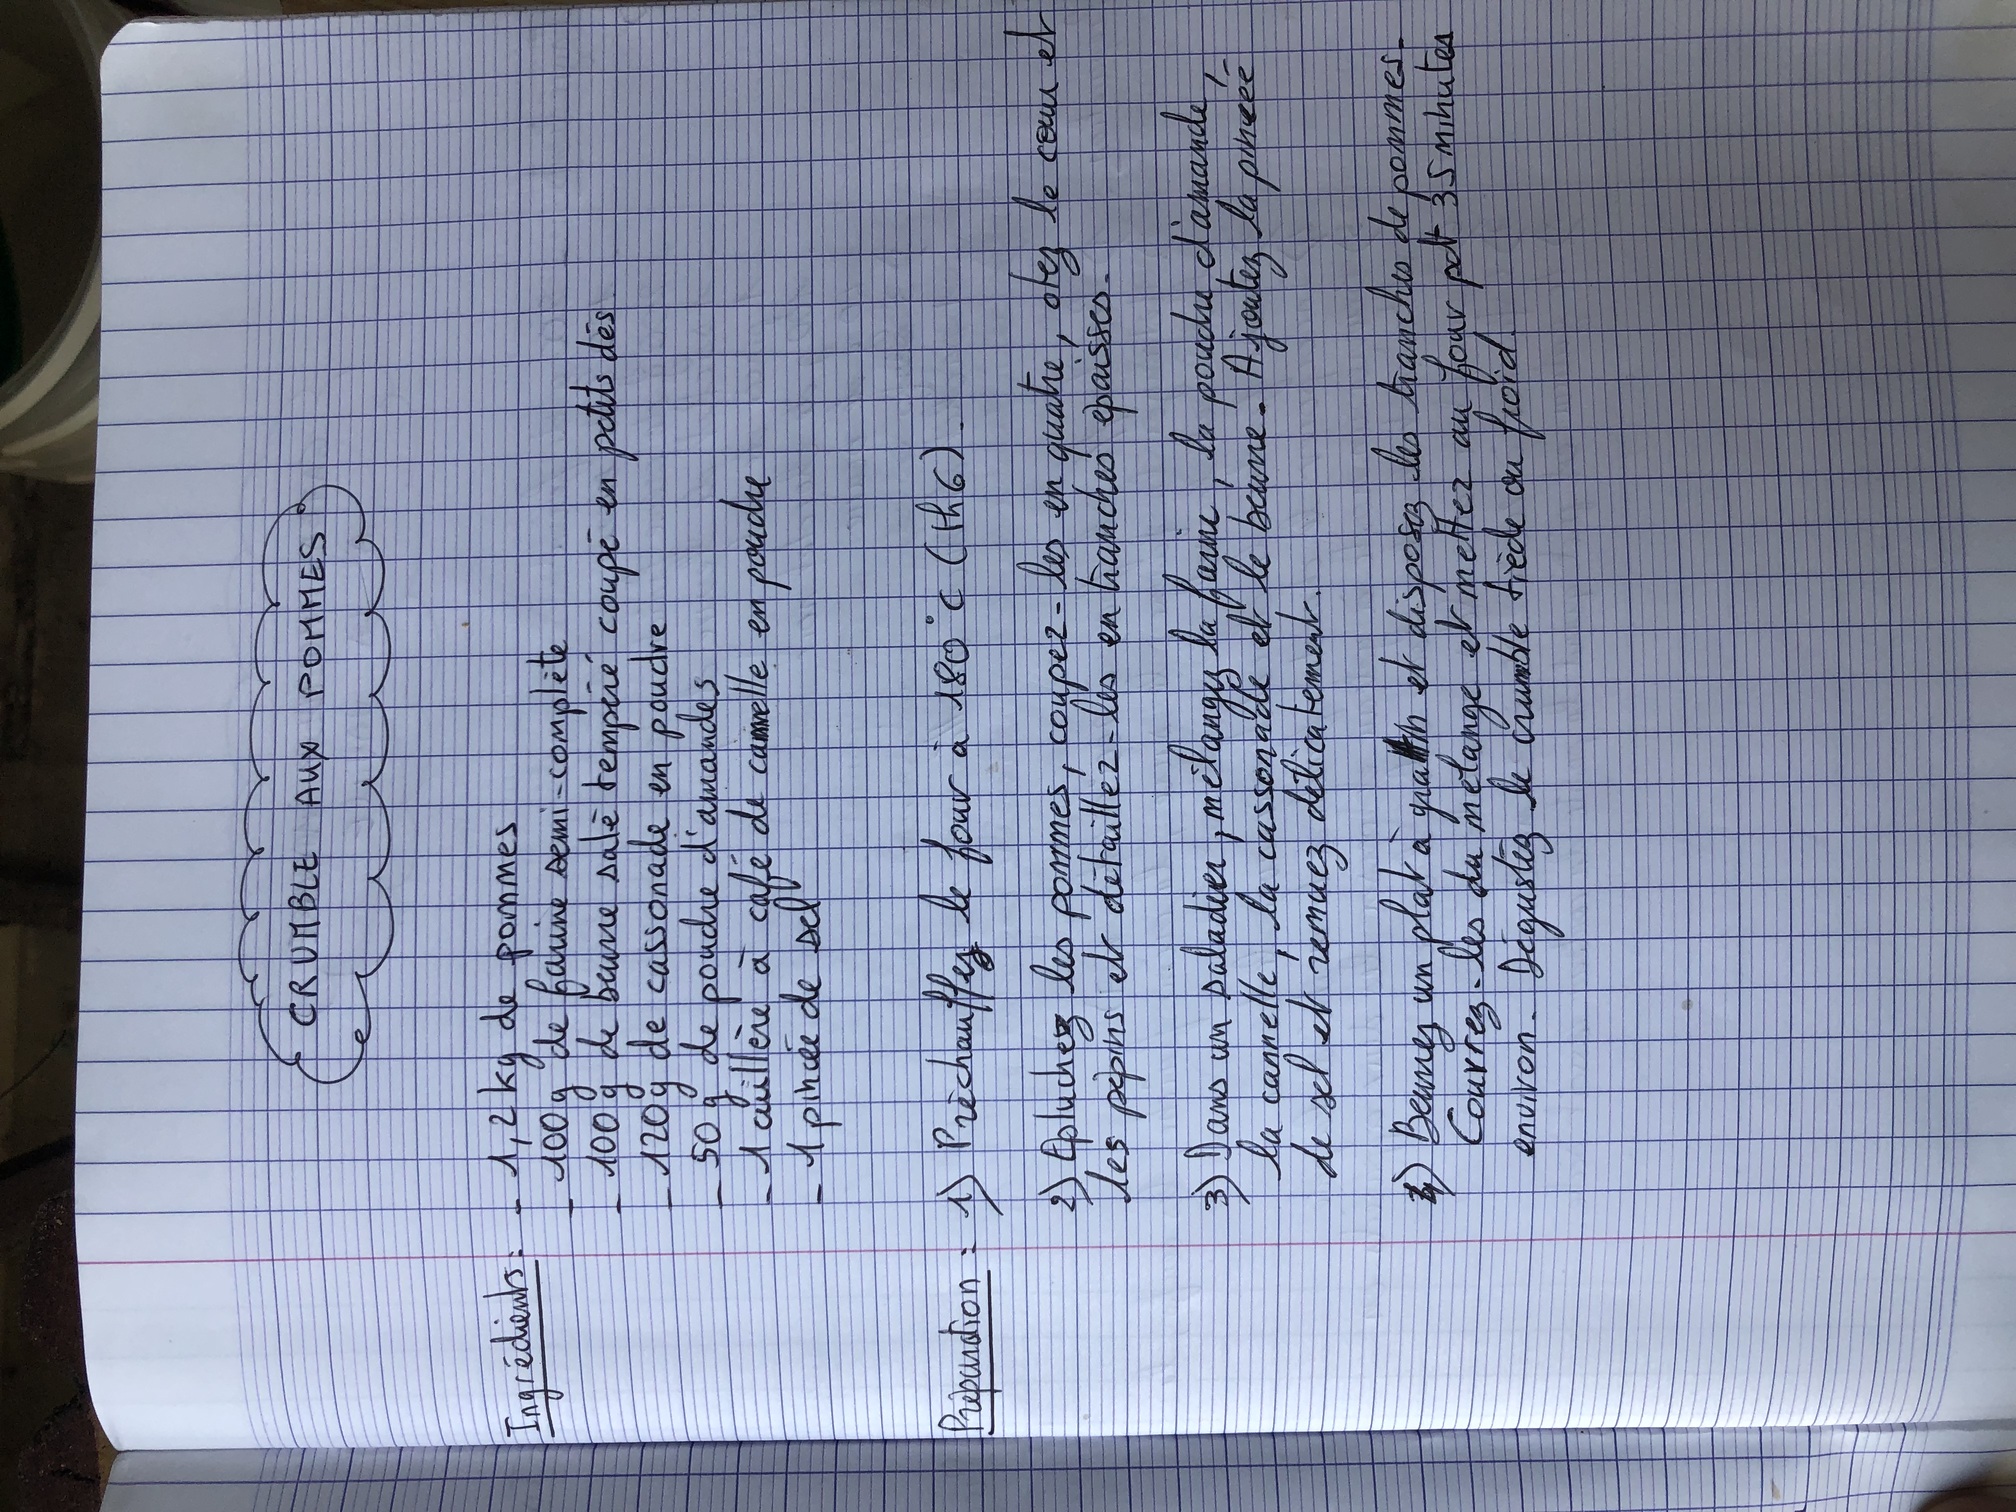 CRUMBLE AUX POMMES
Ingrédients : - 1,2 kg de pommes
- 100 g de farine semi-complète
- 100 g de beurre salé tempéré coupé en petits dés
- 120 g de cassonade en poudre
- 50 g de poudre d'amandes
- 1 cuillère à café de cannelle en poudre
- 1 pincée de sel
Préparation : 1) Préchauffez le four à 180°C (th 6).
2) Epluchez les pommes, coupez-les en quatre, otez le cœur et
les pépins et détaillez-les en tranches épaisses.
3) Dans un saladier, mélangez la farine, la poudre d'amande,
la cannelle, la cassonade et le beurre. Ajoutez la pincée
de sel et remuez délicatement.
4) Beurrez un plat à gratin et disposez les tranches de pommes.
Couvrez-les du mélange et mettez au four pdt 35 minutes
environ. Dégustez le crumble tiède ou froid.